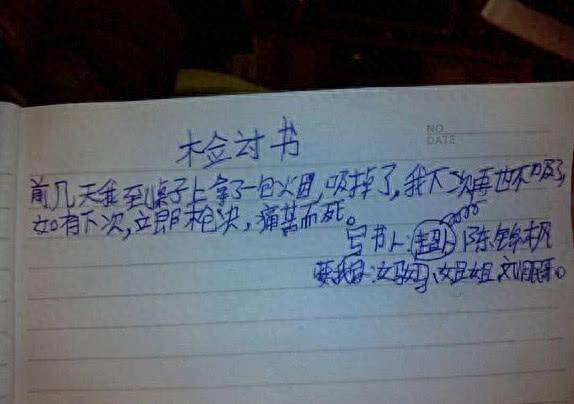 NO
DATE
检讨书
前几天我到桌子上拿了一包火烟,吸掉了,我下次再也不吸了,
如有下次,立即枪决,痛苦而死。
写书人:超人 陈锦帆
妈妈、姐姐